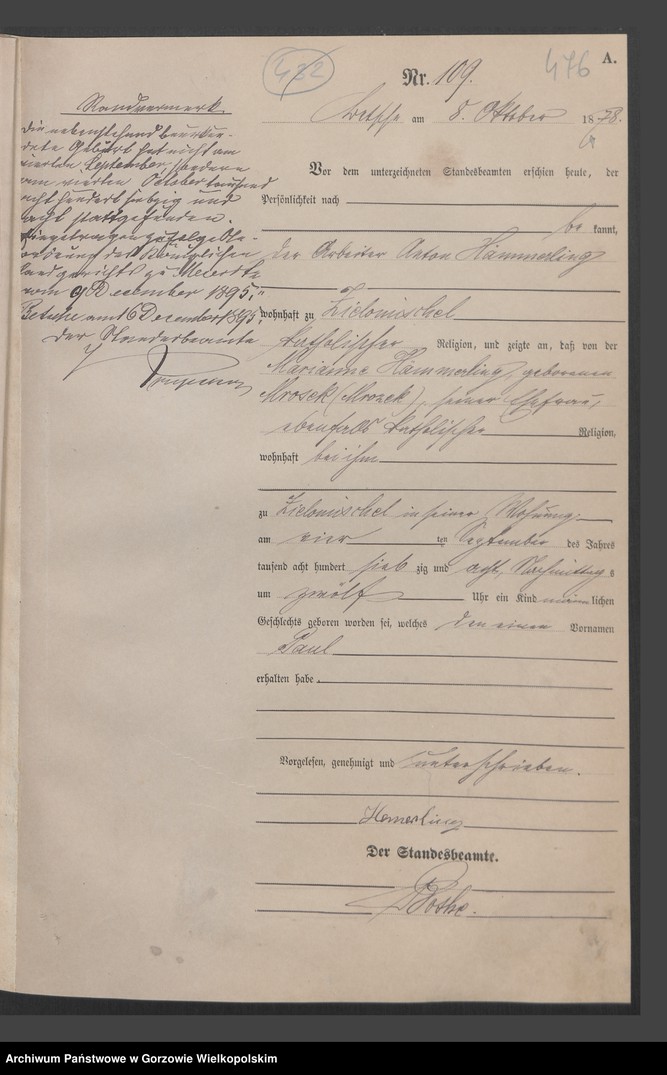 432
476
A.
Nr. 109.
Betsche am 8. Oktober 1878.
Vor dem unterzeichneten Standesbeamten erschien heute, der
Persönlichkeit nach
be kannt,
der Arbeiter Anton Hämmerling
wohnhaft zu Zielomischel
katholischer Religion, und zeigte an, daß von der
Marianne Hämmerling, geborenen
Mrosek (Mrozek), seiner Ehefrau,
ebenfalls katholischer Religion,
wohnhaft bei ihm
zu Zielomischel in seiner Wohnung
am vier ten September des Jahres
tausend acht hundert sieb zig und acht, Nachmittags
um zwölf Uhr ein Kind männlichen
Geschlechts geboren worden sei, welches den einen Vornamen
Paul
erhalten habe.
Vorgelesen, genehmigt und unterschrieben.
Hemerling
Der Standesbeamte.
Randvermerk.
Die nebenstehend beurkun-
dete Geburt hat nicht am
vierten September, sondern
am vierten October tausend
achthundert siebzig und
acht stattgefunden.
Eingetragen zufolge An-
ordnung des Königlichen
Landgerichts zu Meseritz
vom 9 December 1895."
Betsche am 16 December 1895.
Der Standesbeamte
Archiwum Państwowe w Gorzowie Wielkopolskim